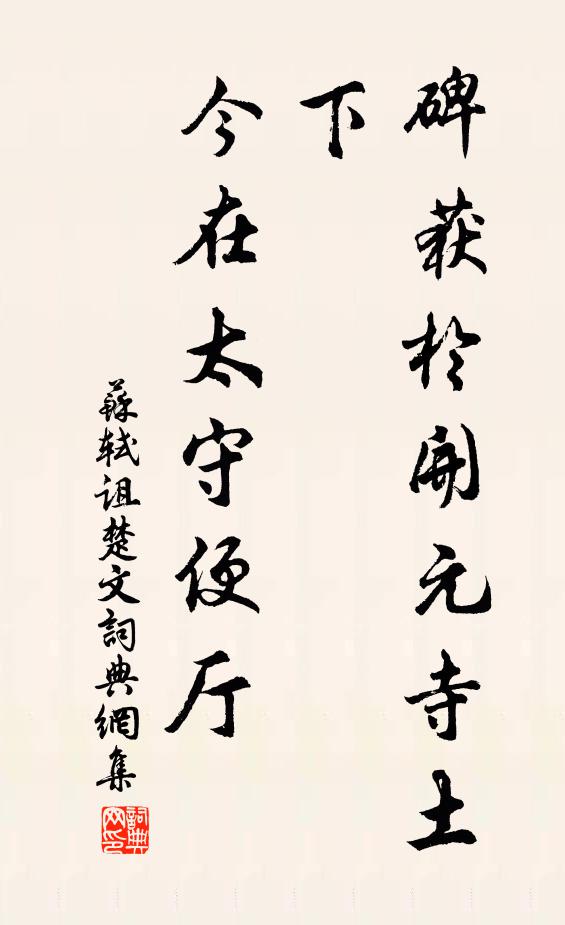 碑获於開元寺土
下
今在太守便厅
蘇軾诅楚文詞典網集
詞典网印